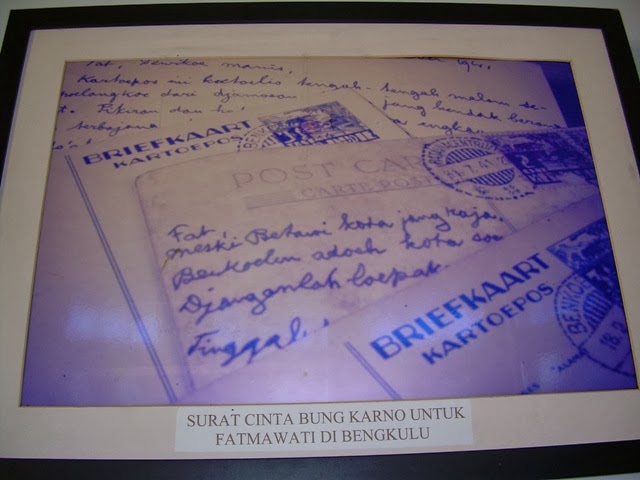 Fat, dewikoe manis,
Kartoepos ini koetoelis tengah-tengah malam se-
poelangkoe dari djamoean
jang hendak
Pikiran dan
terbajang
BRIEFKAART
KARTOEPOS
POST CAR
CARTE POS
Fat,
meski Betawi kota jang kaja.
Benkoelen adoeh kota soe
Djanganlah loepak
Tinggal
BRIEFKAART
KARTOEPOS
BENKOE
SURAT CINTA BUNG KARNO UNTUK
FATMAWATI DI BENGKULU